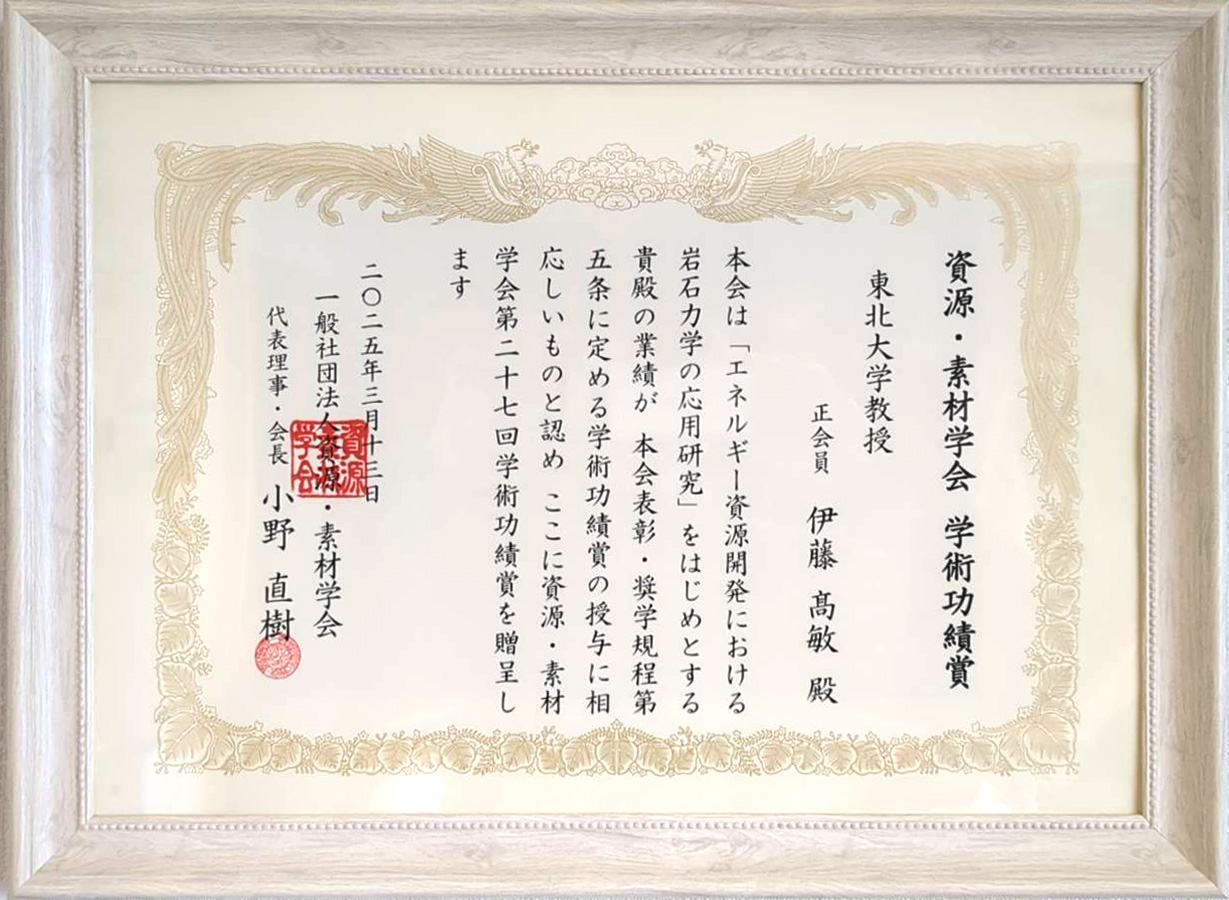 資源・素材学会 学術功績賞
東北大学教授
正会員 伊藤 髙敏 殿
本会は「エネルギー資源開発における
岩石力学の応用研究」をはじめとする
貴殿の業績が 本会表彰・奨学規程第
五条に定める学術功績賞の授与に相
応しいものと認め ここに資源・素材
学会第二十七回学術功績賞を贈呈し
ます
二〇二五年三月十三日
一般社団法人資源・素材学会
代表理事・会長 小野 直樹
資源
素材
学会